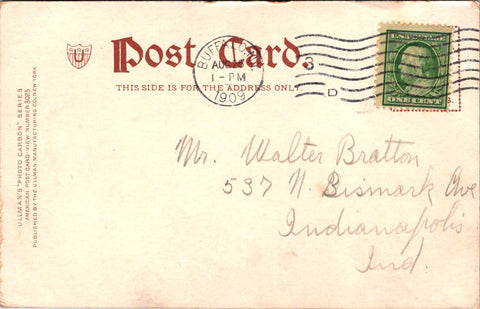 Post Card.
THIS SIDE IS FOR THE ADDRESS ONLY.
U
BUFFALO, N.Y.
AUG
1-PM
1909
3
D
ONE CENT
Mr. Walter Bratton
537 N. Bismark Ave
Indianapolis
Ind.
ULLMAN'S "PHOTO CARBON" SERIES
AMERICAN POST CARD-VIEW NUMBER 3025
PUBLISHED BY THE ULLMAN MANUFACTURING CO., NEW YORK